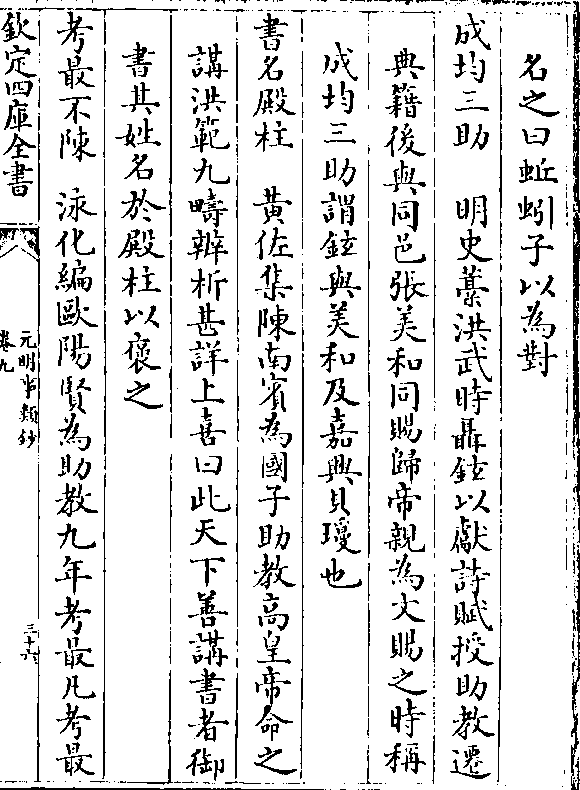 名之曰蚯蚓子以為對
成均三助　明史藳洪武時聶鉉以獻詩賦授助教遷
典籍後與同邑張美和同賜歸帝親為文賜之時稱
成均三助謂鉉與美和及嘉興貝瓊也
書名殿柱　黄佐集陳南賓為國子助教高皇帝命之
講洪範九疇辨析甚詳上喜曰此天下善講書者御
書其姓名於殿柱以褒之
考最不陳　泳化編歐陽賢為助教九年考最凡考最
欽定四庫全書
元明事類鈔
卷九
三十六